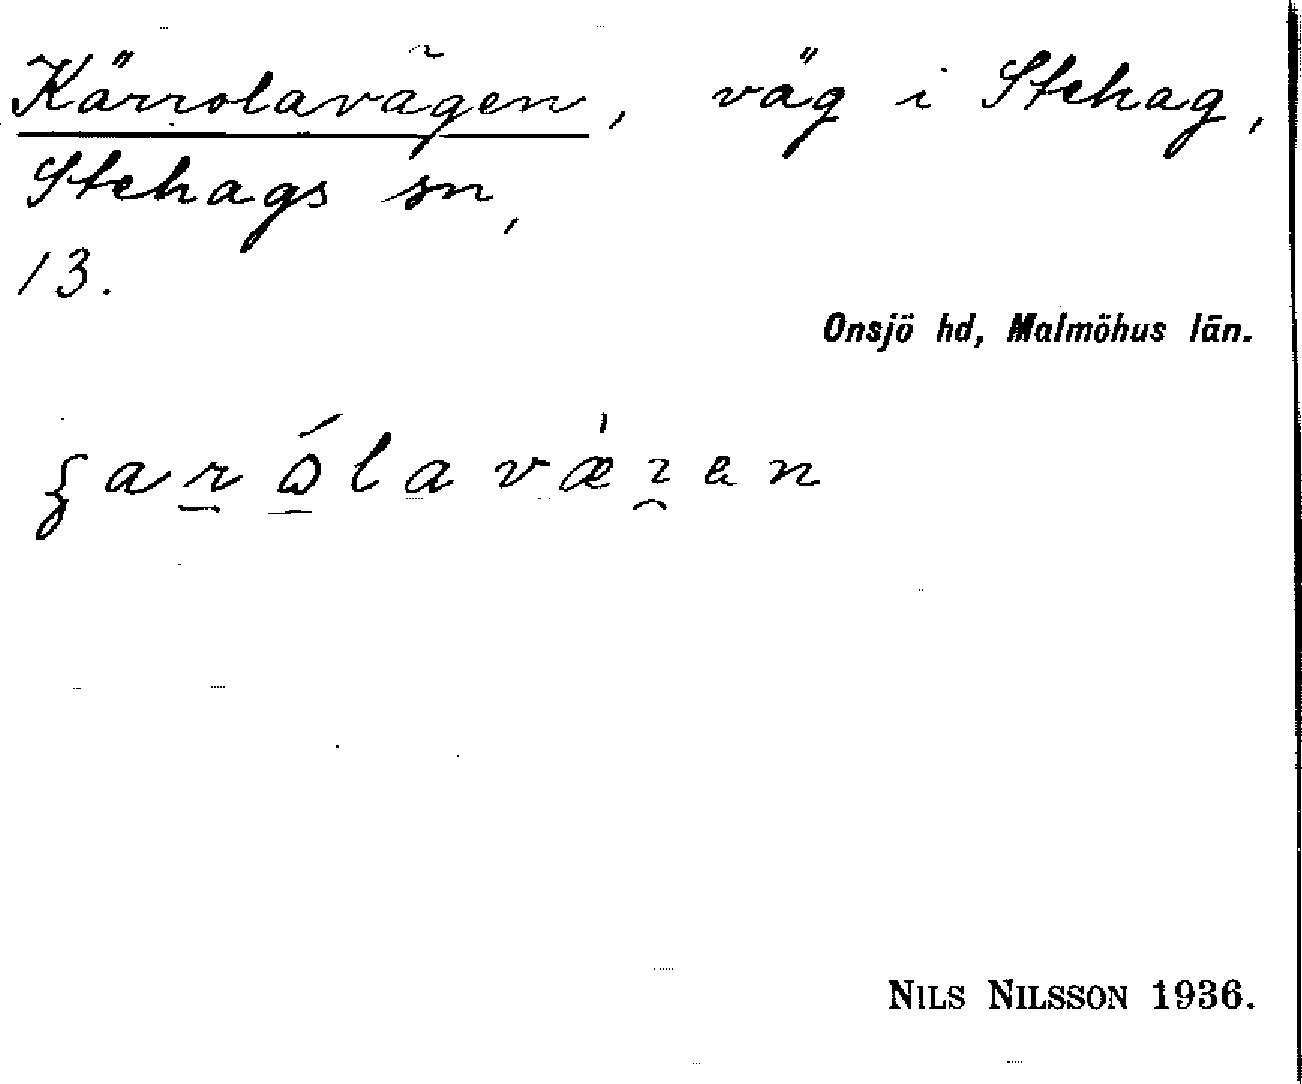 Kärrolavägen, väg i Stehag,
Stehags sn,
13.
Onsjö hd, Malmöhus län.
NILS NILSSON 1936.